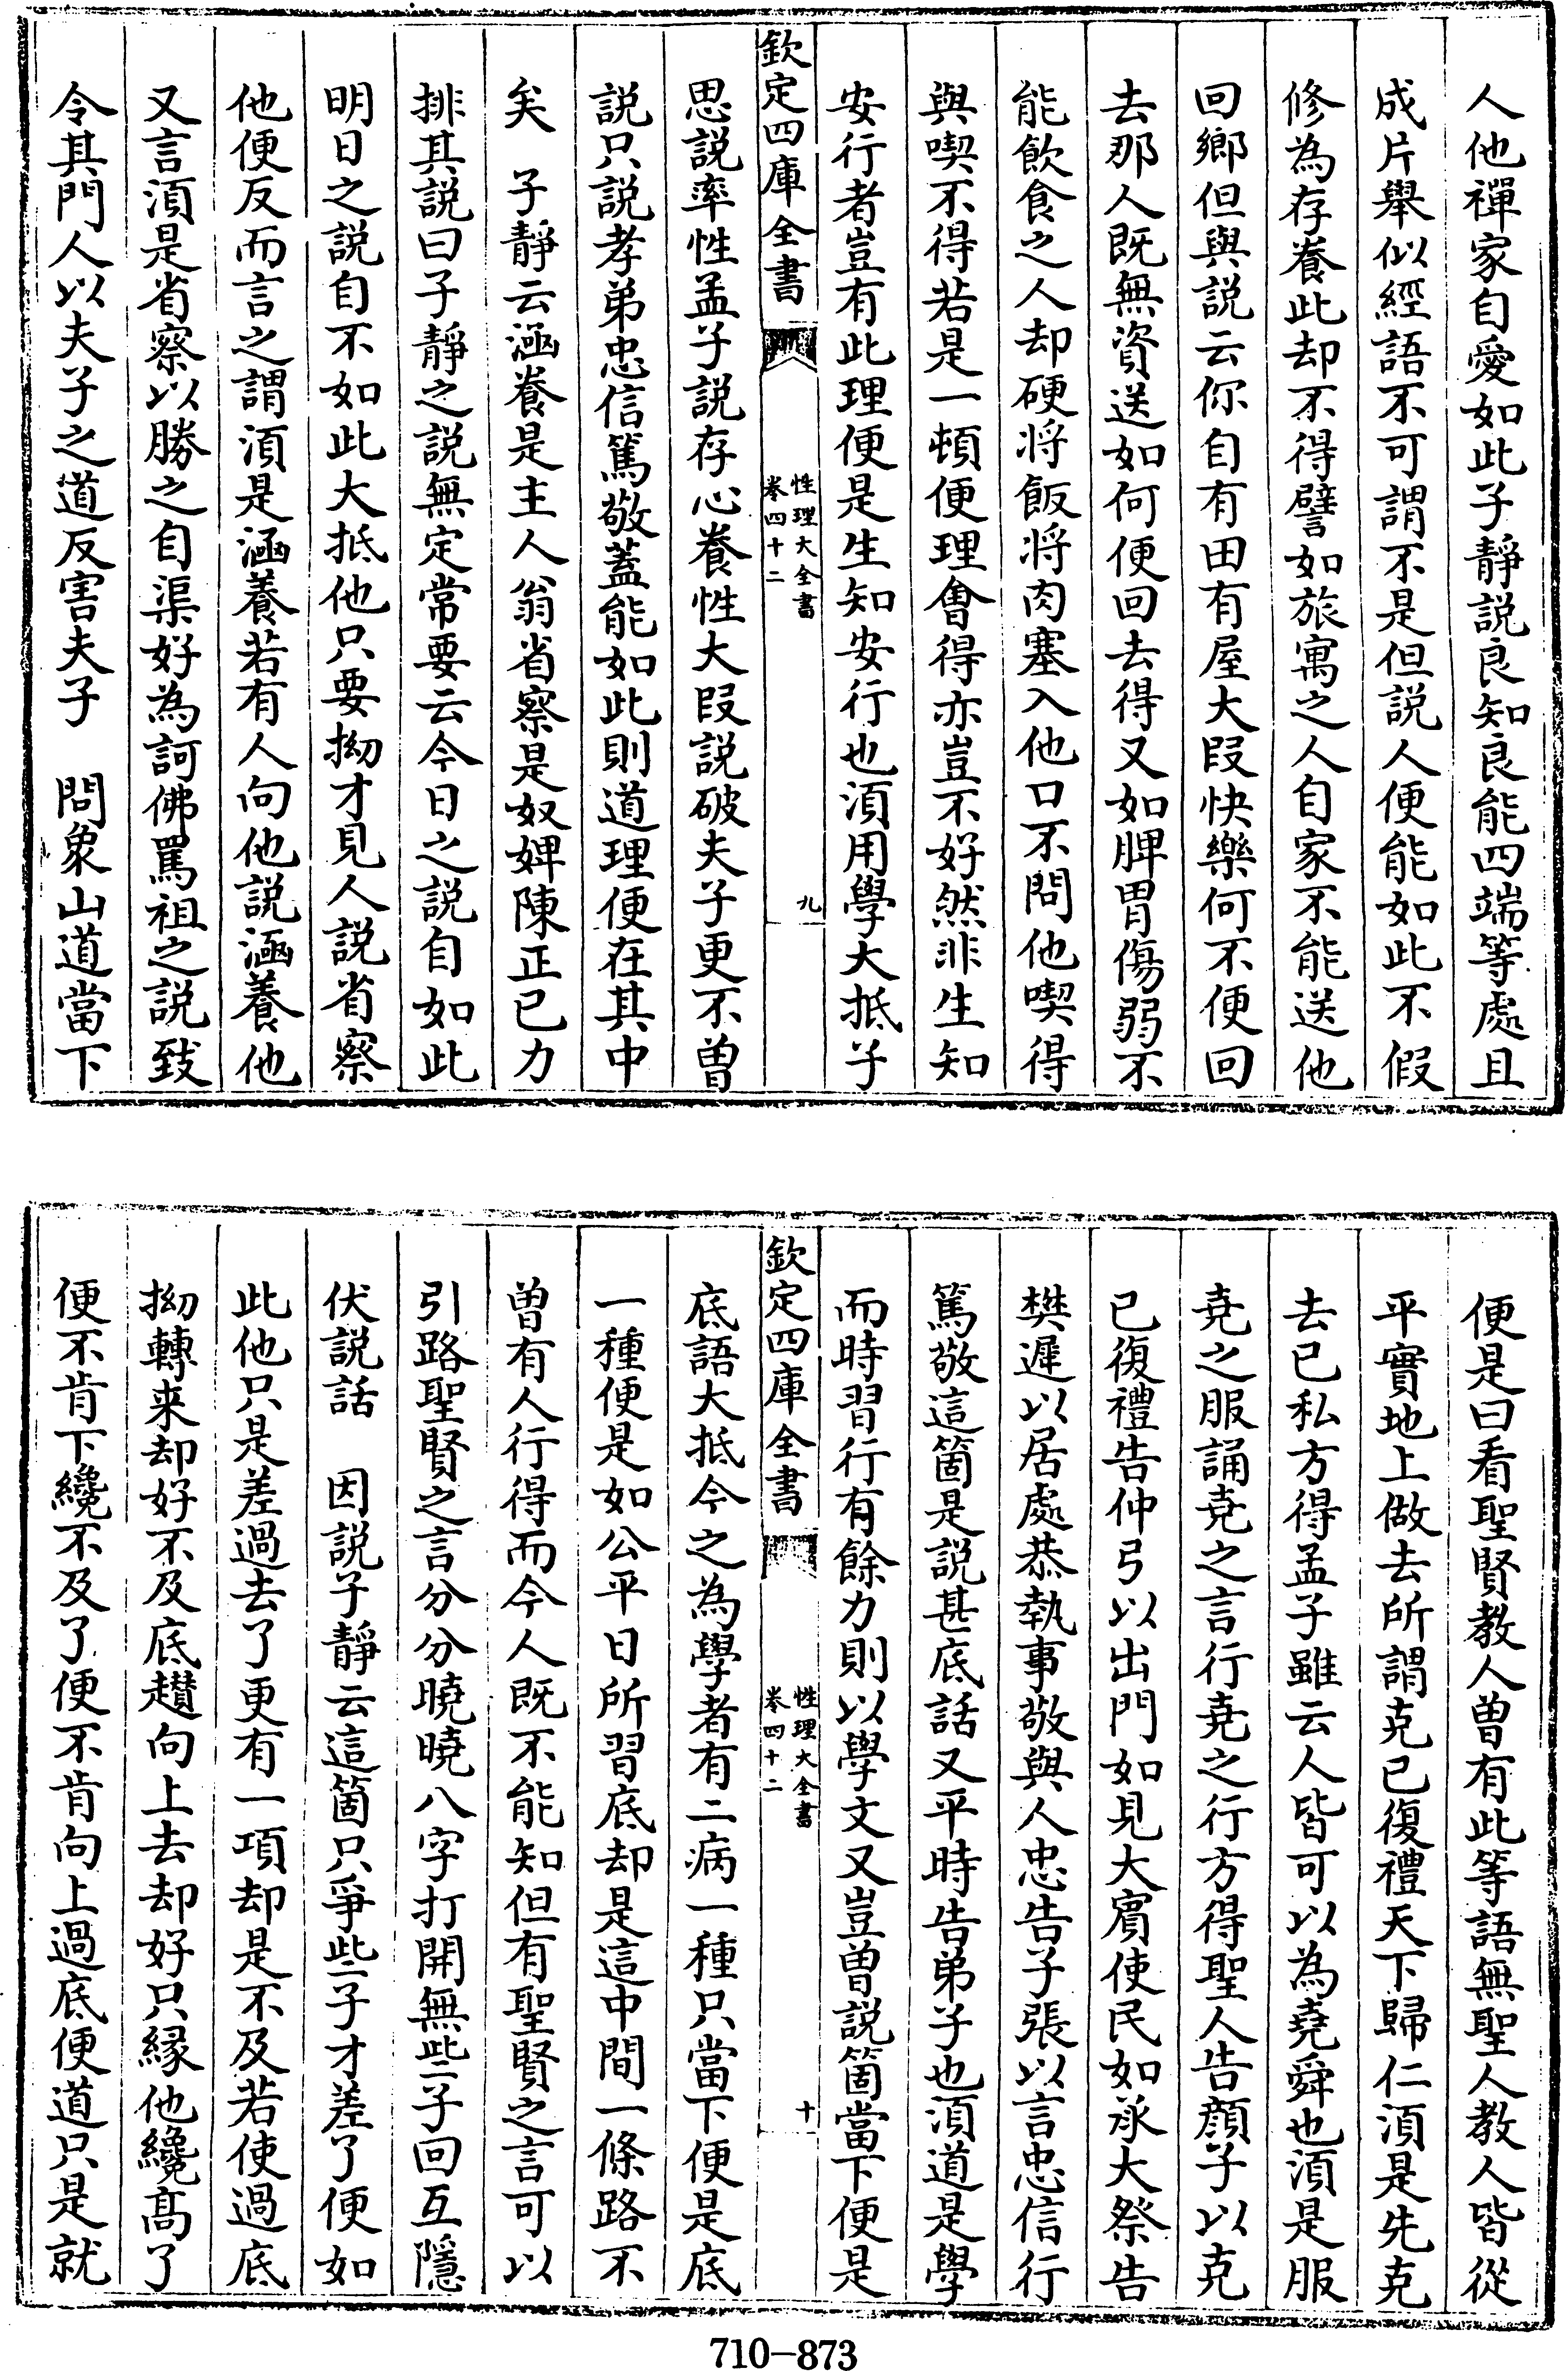 人他禪家自愛如此子靜説良知良能四端等處且
成片舉似經語不可謂不是但説人便能如此不假
修為存養此却不得譬如旅寓之人自家不能送他
回鄉但與説云你自有田有屋大段快樂何不便回
去那人既無資送如何便回去得又如脾胃傷弱不
能飲食之人却硬将飯将肉塞入他口不問他喫得
與喫不得若是一頓便理㑹得亦豈不好然非生知
安行者豈有此理便是生知安行也須用學大抵子
欽定四庫全書
性理大全書
卷四十二
九
思説率性孟子説存心養性大段説破夫子更不曽
説只説孝弟忠信篤敬蓋能如此則道理便在其中
矣　子靜云涵養是主人翁省察是奴婢陳正已力
排其説曰子靜之説無定常要云今日之説自如此
明日之説自不如此大抵他只要拗才見人説省察
他便反而言之謂須是涵養若有人向他説涵養他
又言須是省察以勝之自渠好為訶佛罵祖之説致
令其門人以夫子之道反害夫子　問象山道當下
便是曰看聖賢教人曽有此等語無聖人教人皆從
平實地上做去所謂克已復禮天下歸仁須是先克
去已私方得孟子雖云人皆可以為堯舜也須是服
堯之服誦堯之言行堯之行方得聖人告顔子以克
已復禮告仲弓以出門如見大賓使民如承大祭告
樊遲以居處恭執事敬與人忠告子張以言忠信行
篤敬這箇是説甚底話又平時告弟子也須道是學
而時習行有餘力則以學文又豈曽説箇當下便是
欽定四庫全書
性理大全書
卷四十二
十
底語大抵今之為學者有二病一種只當下便是底
一種便是如公平日所習底却是這中間一條路不
曽有人行得而今人既不能知但有聖賢之言可以
引路聖賢之言分分曉曉八字打開無些子回互隱
伏説話　因説子靜云這箇只爭些子才差了便如
此他只是差過去了更有一項却是不及若使過底
拗轉来却好不及底趲向上去却好只緣他纔髙了
便不肯下纔不及了便不肯向上過底便道只是就
710-873